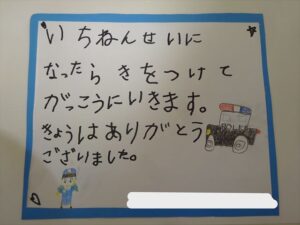 いちねんせいに
なったら きをつけて
がっこうにいきます。
きょうはありがとう
ございました。